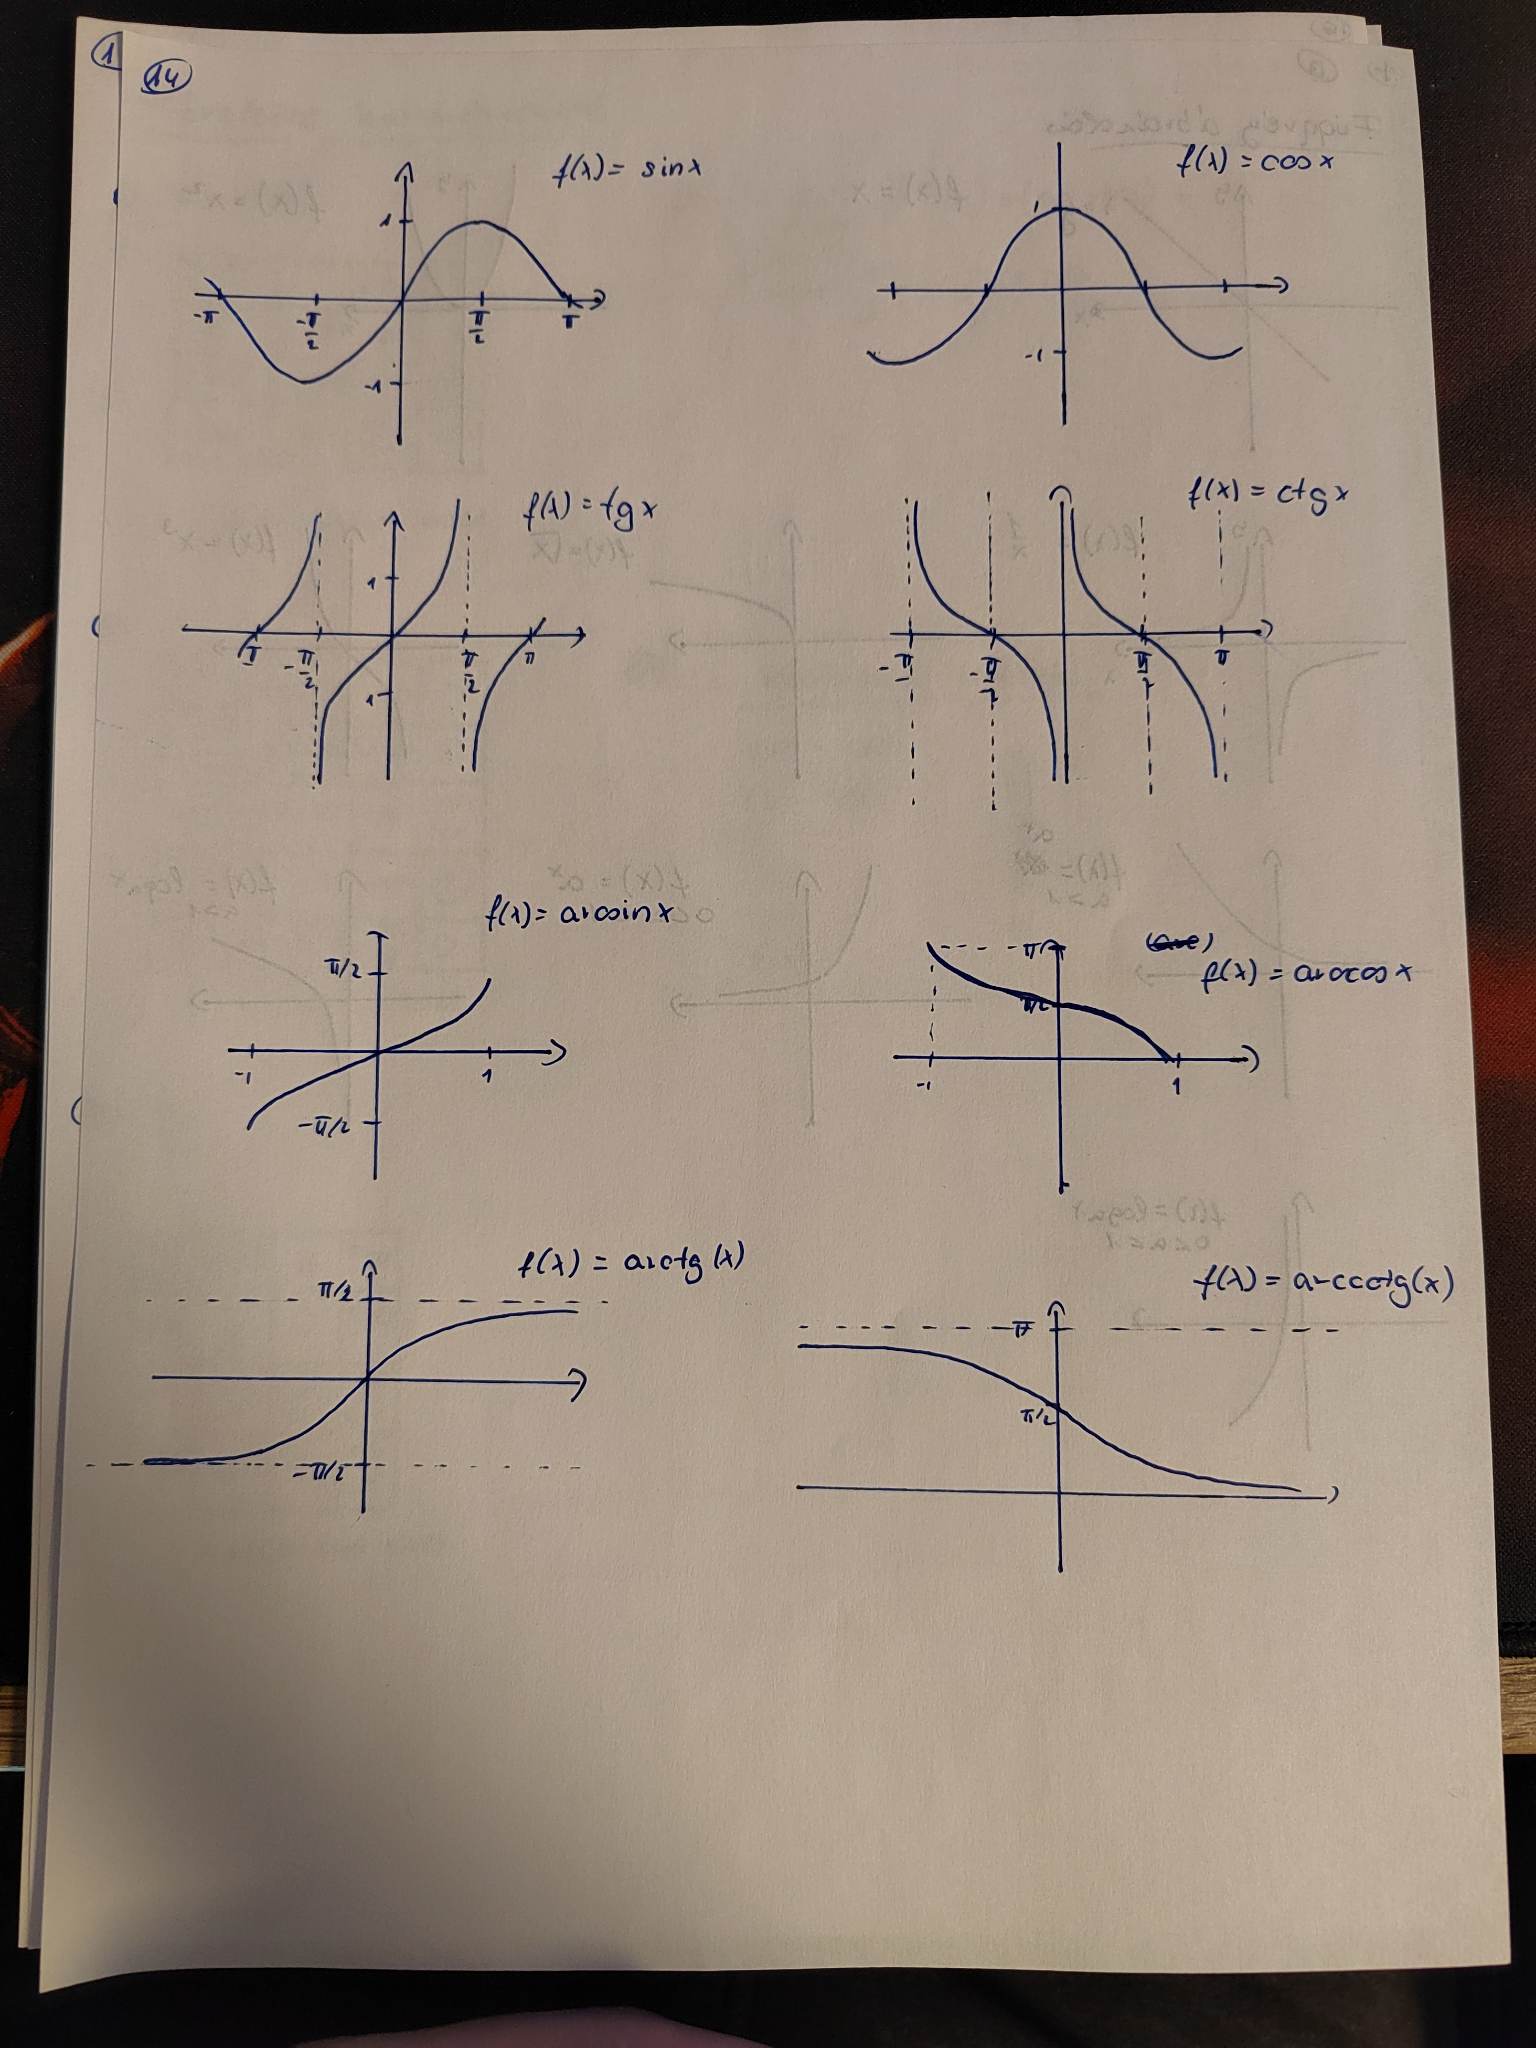 1
14
f(x) = sinx
1
-π
-π/2
π/2
π
-1
f(x) = cosx
1
-1
f(x) = tgx
1
π
-π/2
π/2
π
1
f(x) = ctgx
-π
-π/2
π/2
π
f(x) = arcsinx
π/2
-1
1
-π/2
f(x) = arccosx
π
π/2
-1
1
f(x) = arctg(x)
π/2
-π/2
f(x) = arcctg(x)
π
π/2